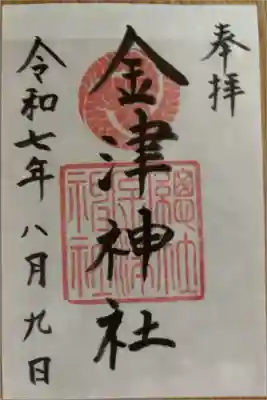 奉拝
金津神社
令和七年八月九日